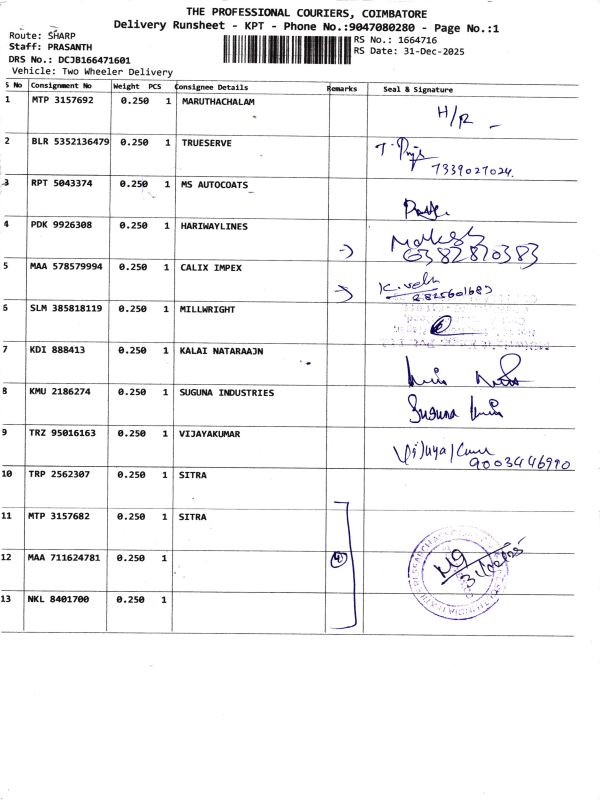 THE PROFESSIONAL COURIERS, COIMBATORE
Delivery Runsheet - KPT - Phone No.:9047080280 - Page No.:1
Route: SHARP
Staff: PRASANTH
DRS No.: DCJB166471601
Vehicle: Two Wheeler Delivery
RS No.: 1664716
RS Date: 31-Dec-2025
S No Consignment No Weight PCS Consignee Details Remarks Seal & Signature
1 MTP 3157692 0.250 1 MARUTHACHALAM H/R
2 BLR 5352136479 0.250 1 TRUESERVE
7339027024.
3 RPT 5043374 0.250 1 MS AUTOCOATS
4 PDK 9926308 0.250 1 HARIWAYLINES
6382870383
5 MAA 578579994 0.250 1 CALIX IMPEX K. velu
6 SLM 385818119 0.250 1 MILLWRIGHT
7 KDI 888413 0.250 1 KALAI NATARAAJN
8 KMU 2186274 0.250 1 SUGUNA INDUSTRIES Suguna
9 TRZ 95016163 0.250 1 VIJAYAKUMAR
9003446990
10 TRP 2562307 0.250 1 SITRA
11 MTP 3157682 0.250 1 SITRA
12 MAA 711624781 0.250 1 4
13 NKL 8401700 0.250 1